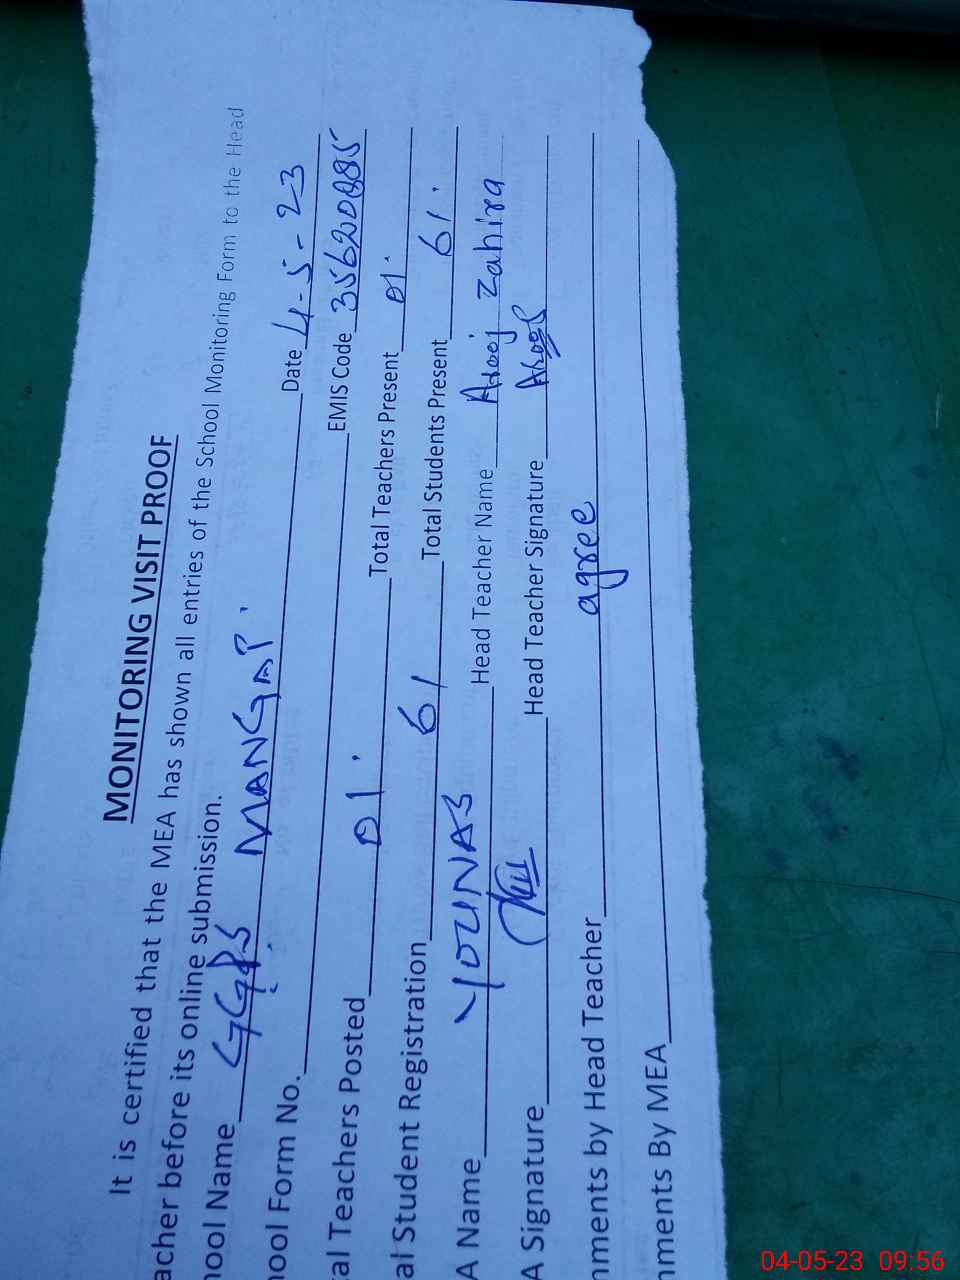 MONITORING VISIT PROOF
It is certified that the MEA has shown all entries of the School Monitoring Form to the Head
acher before its online submission.
hool Name GGPS MANGAT. Date 4-5-23
hool Form No. EMIS Code 35620885
tal Teachers Posted 01. Total Teachers Present 01.
al Student Registration 61 Total Students Present 61.
A Name YOUNAS Head Teacher Name Arooj Zahira
A Signature Head Teacher Signature Arooj
nments by Head Teacher agree
nments By MEA
04-05-23 09:56